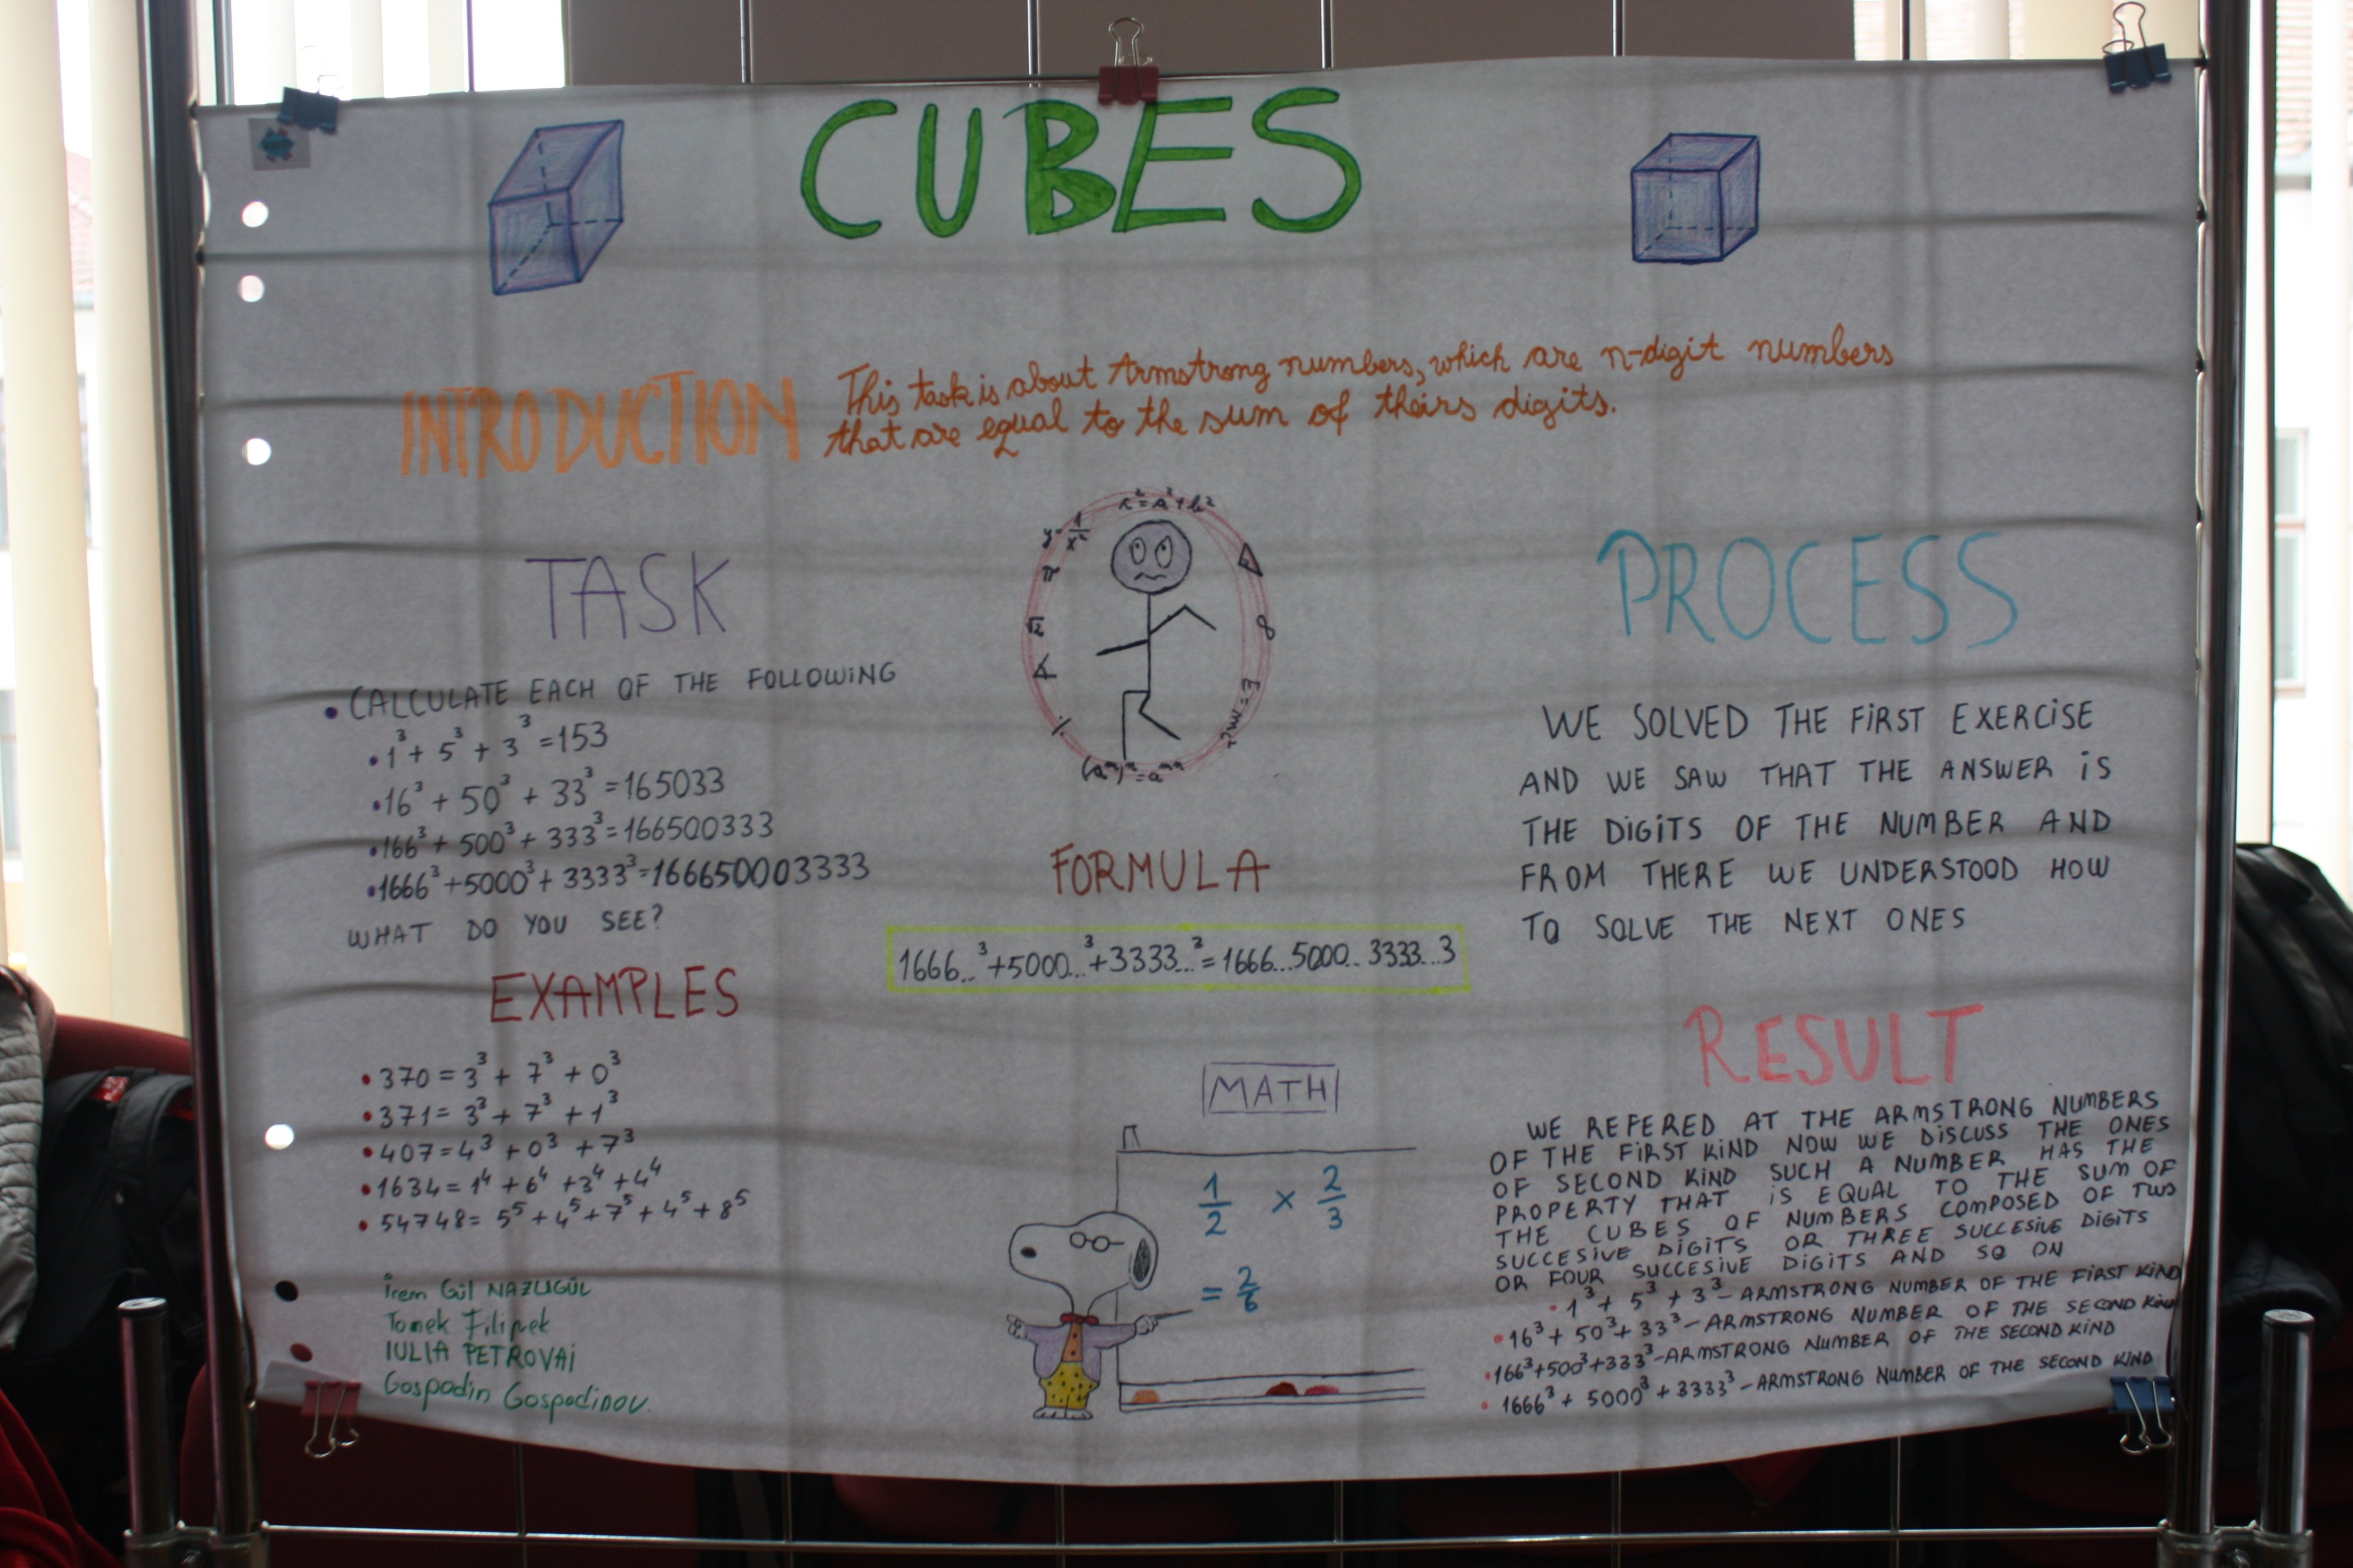 CUBES
INTRODUCTION
This task is about Armstrong numbers, which are n-digit numbers
that are equal to the sum of theirs digits.
TASK
• CALCULATE EACH OF THE FOLLOWING
• 1³ + 5³ + 3³ = 153
• 16³ + 50³ + 33³ = 165033
• 166³ + 500³ + 333³ = 166500333
• 1666³ + 5000³ + 3333³ = 166650003333
WHAT DO YOU SEE?
EXAMPLES
• 370 = 3³ + 7³ + 0³
• 371 = 3³ + 7³ + 1³
• 407 = 4³ + 0³ + 7³
• 1634 = 1⁴ + 6⁴ + 3⁴ + 4⁴
• 54748 = 5⁵ + 4⁵ + 7⁵ + 4⁵ + 8⁵
İrem Gül NAZLIGÜL
Tomek Filipek
IULIA PETROVAI
Gospodin Gospodinov.
y = 1/x²
π
√2
(aⁿ)ⁿ = aⁿⁿ
∞
FORMULA
1666..³ + 5000...³ + 3333...³ = 1666...5000.. 3333...3
MATH
1/2 × 2/3
= 2/6
PROCESS
WE SOLVED THE FIRST EXERCISE
AND WE SAW THAT THE ANSWER IS
THE DIGITS OF THE NUMBER AND
FROM THERE WE UNDERSTOOD HOW
TO SOLVE THE NEXT ONES
RESULT
WE REFERED AT THE ARMSTRONG NUMBERS
OF THE FIRST KIND NOW WE DISCUSS THE ONES
OF SECOND KIND SUCH A NUMBER HAS THE
PROPERTY THAT IS EQUAL TO THE SUM OF
THE CUBES OF NUMBERS COMPOSED OF TWO
SUCCESIVE DIGITS OR THREE SUCCESIVE DIGITS
OR FOUR SUCCESIVE DIGITS AND SO ON
• 1³ + 5³ + 3³ – ARMSTRONG NUMBER OF THE FIRST KIND
• 16³ + 50³ + 33³ – ARMSTRONG NUMBER OF THE SECOND KIND
• 166³ + 500³ + 333³ – ARMSTRONG NUMBER OF THE SECOND KIND
• 1666³ + 5000³ + 3333³ – ARMSTRONG NUMBER OF THE SECOND KIND